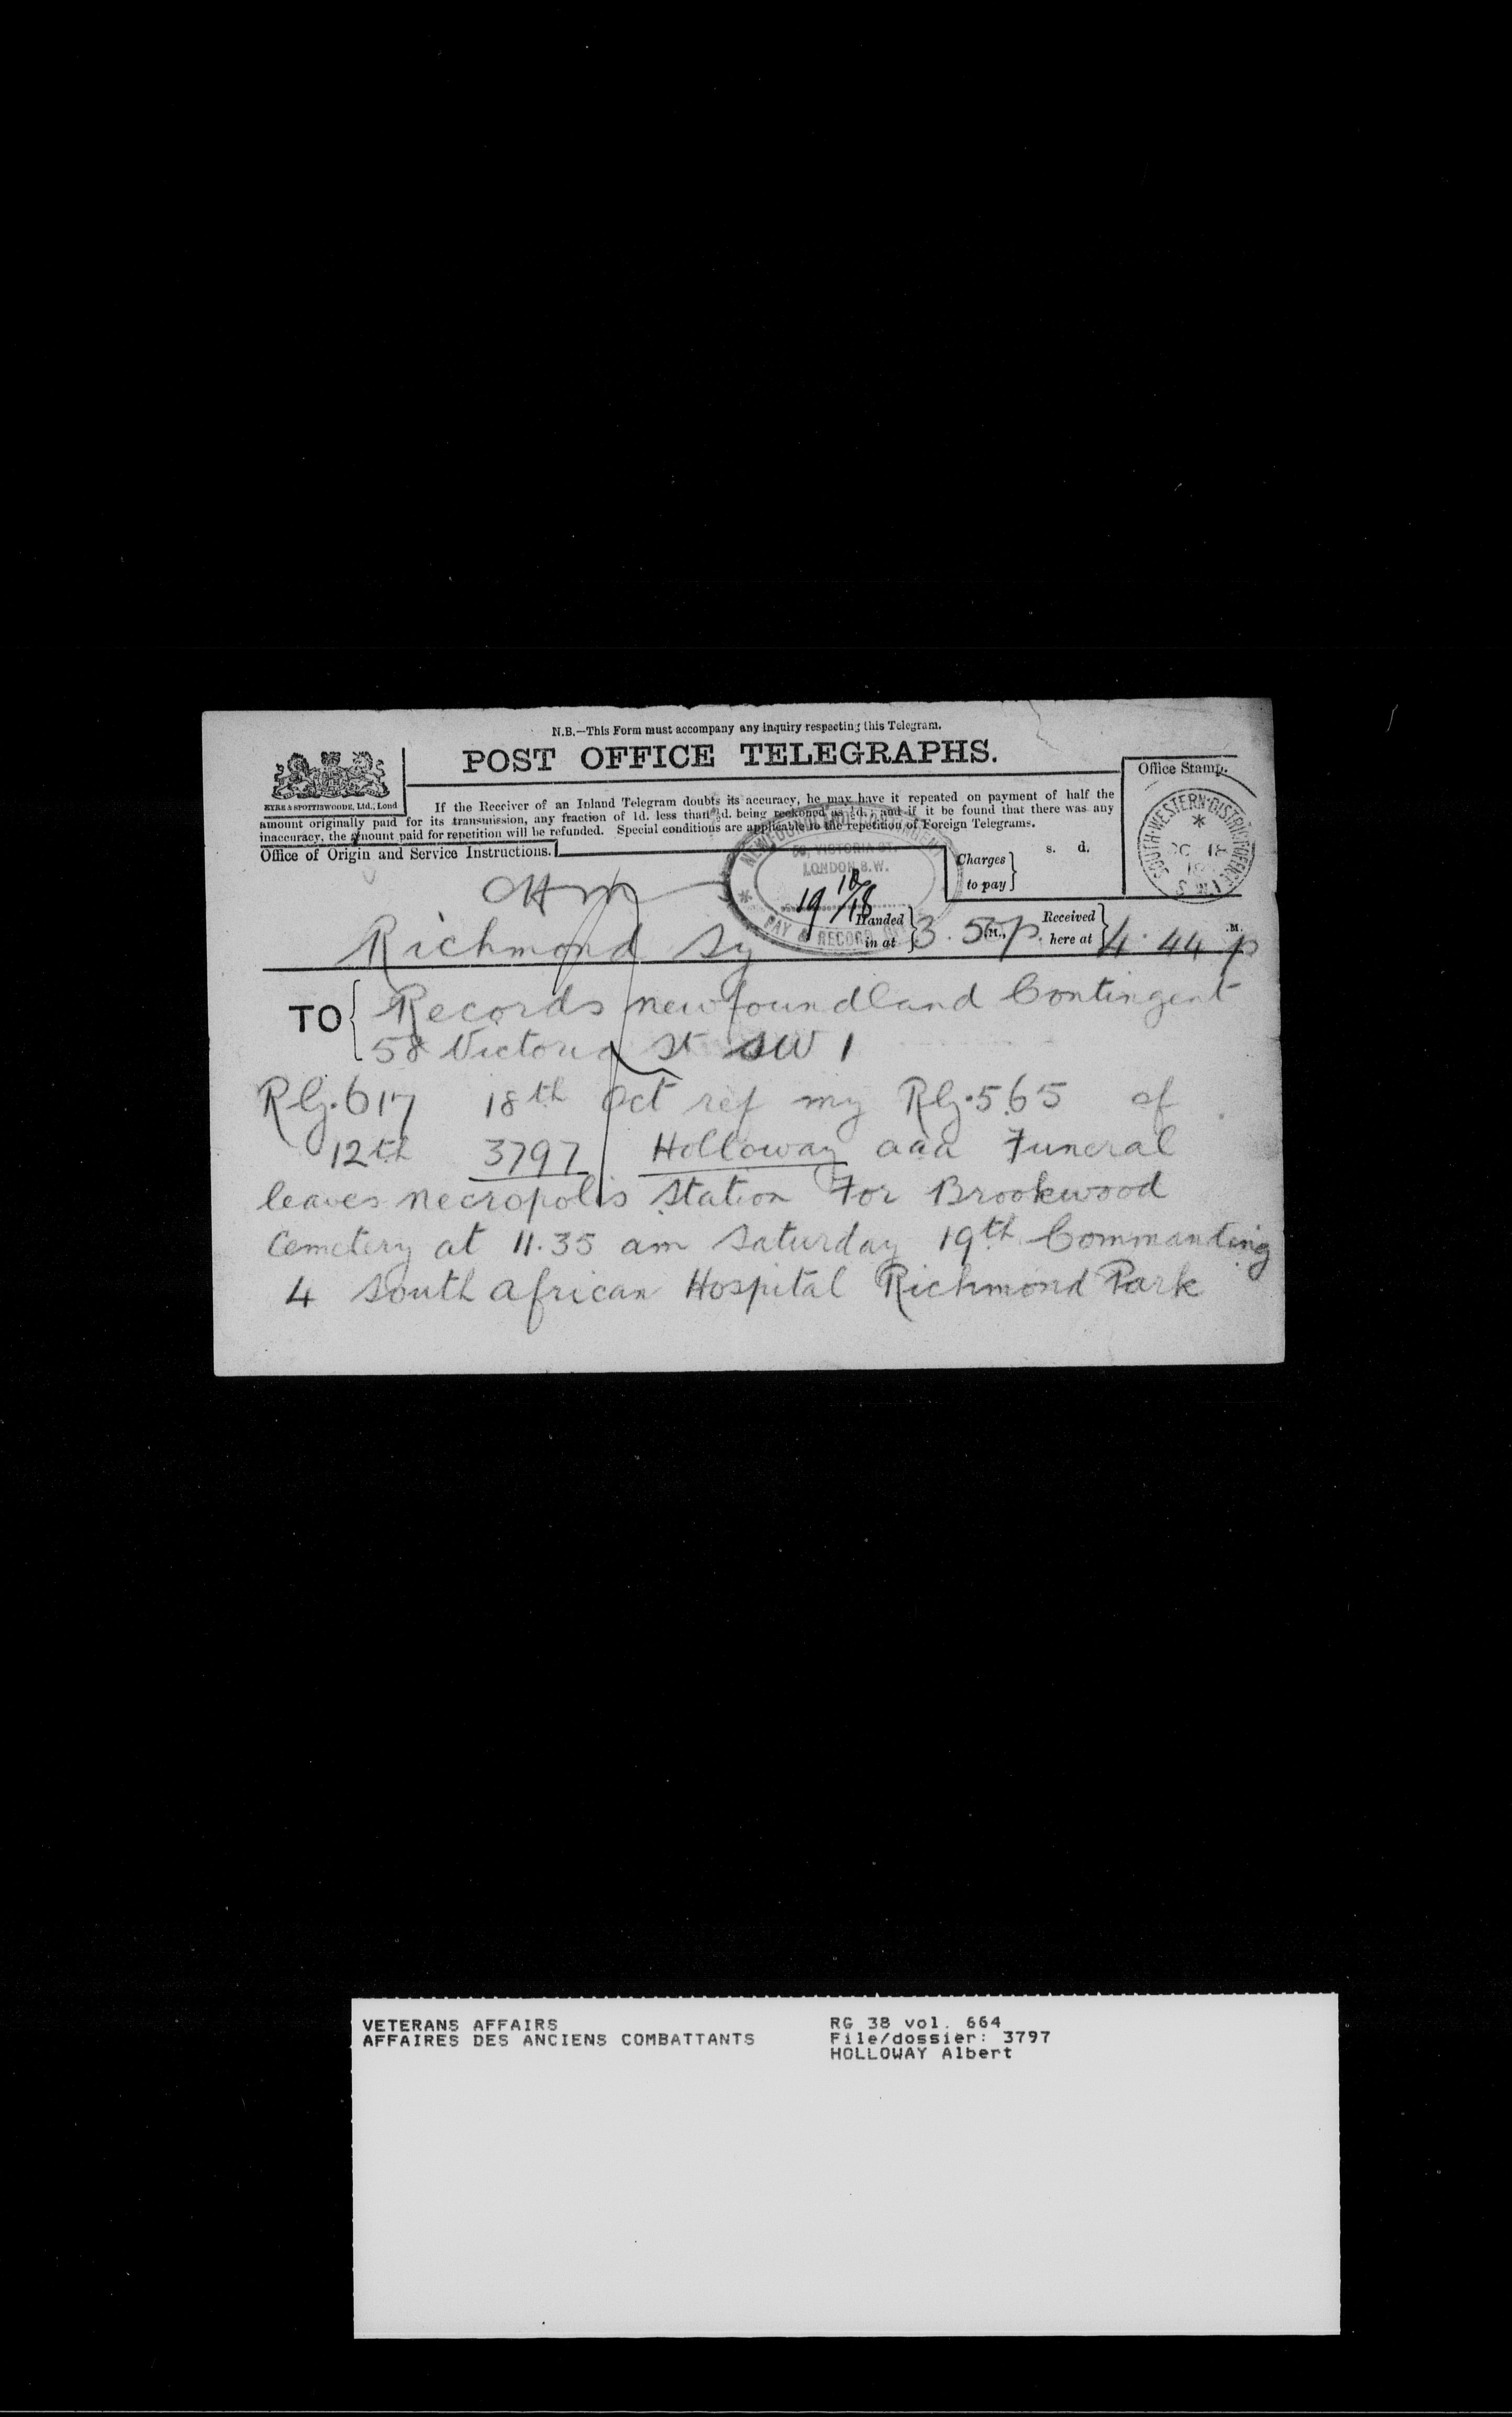 N.B.—This Form must accompany any inquiry respecting this Telegram.
POST OFFICE TELEGRAPHS.
Office Stamp.
EYRE & SPOTTISWOODE, Ltd., Lond
If the Receiver of an Inland Telegram doubts its accuracy, he may have it repeated on payment of half the
amount originally paid for its transmission, any fraction of 1d. less than ½d. being reckoned as ½d.; and if it be found that there was any
inaccuracy, the amount paid for repetition will be refunded. Special conditions are applicable to the repetition of Foreign Telegrams.
Office of Origin and Service Instructions.
SOUTH WESTERN DISTRICT OFFICE
OC 18
18
S.W.1
NEWFOUNDLAND CONTINGENT
58, VICTORIA ST.
LONDON S.W.
19 10/18
PAY & RECORD
Charges to pay
s. d.
Richmond Sy
Handed in at 3.5 p. M.,
Received here at 4.44 p M.
TO Records newfoundland Contingent
58 Victoria St SW 1
Rlg.617 18th Oct ref my Rlg.565 of
12th 3797 Holloway aaa Funeral
leaves necropolis station For Brookwood
Cemetery at 11.35 am Saturday 19th Commanding
4 South african Hospital Richmond Park
VETERANS AFFAIRS
AFFAIRES DES ANCIENS COMBATTANTS
RG 38 vol. 664
File/dossier: 3797
HOLLOWAY Albert